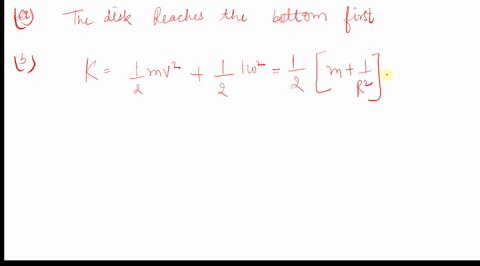 (a) The disk Reaches the bottom first.
(b) K = 1/2 mv² + 1/2 Iω² = 1/2 [m + 1/R²].